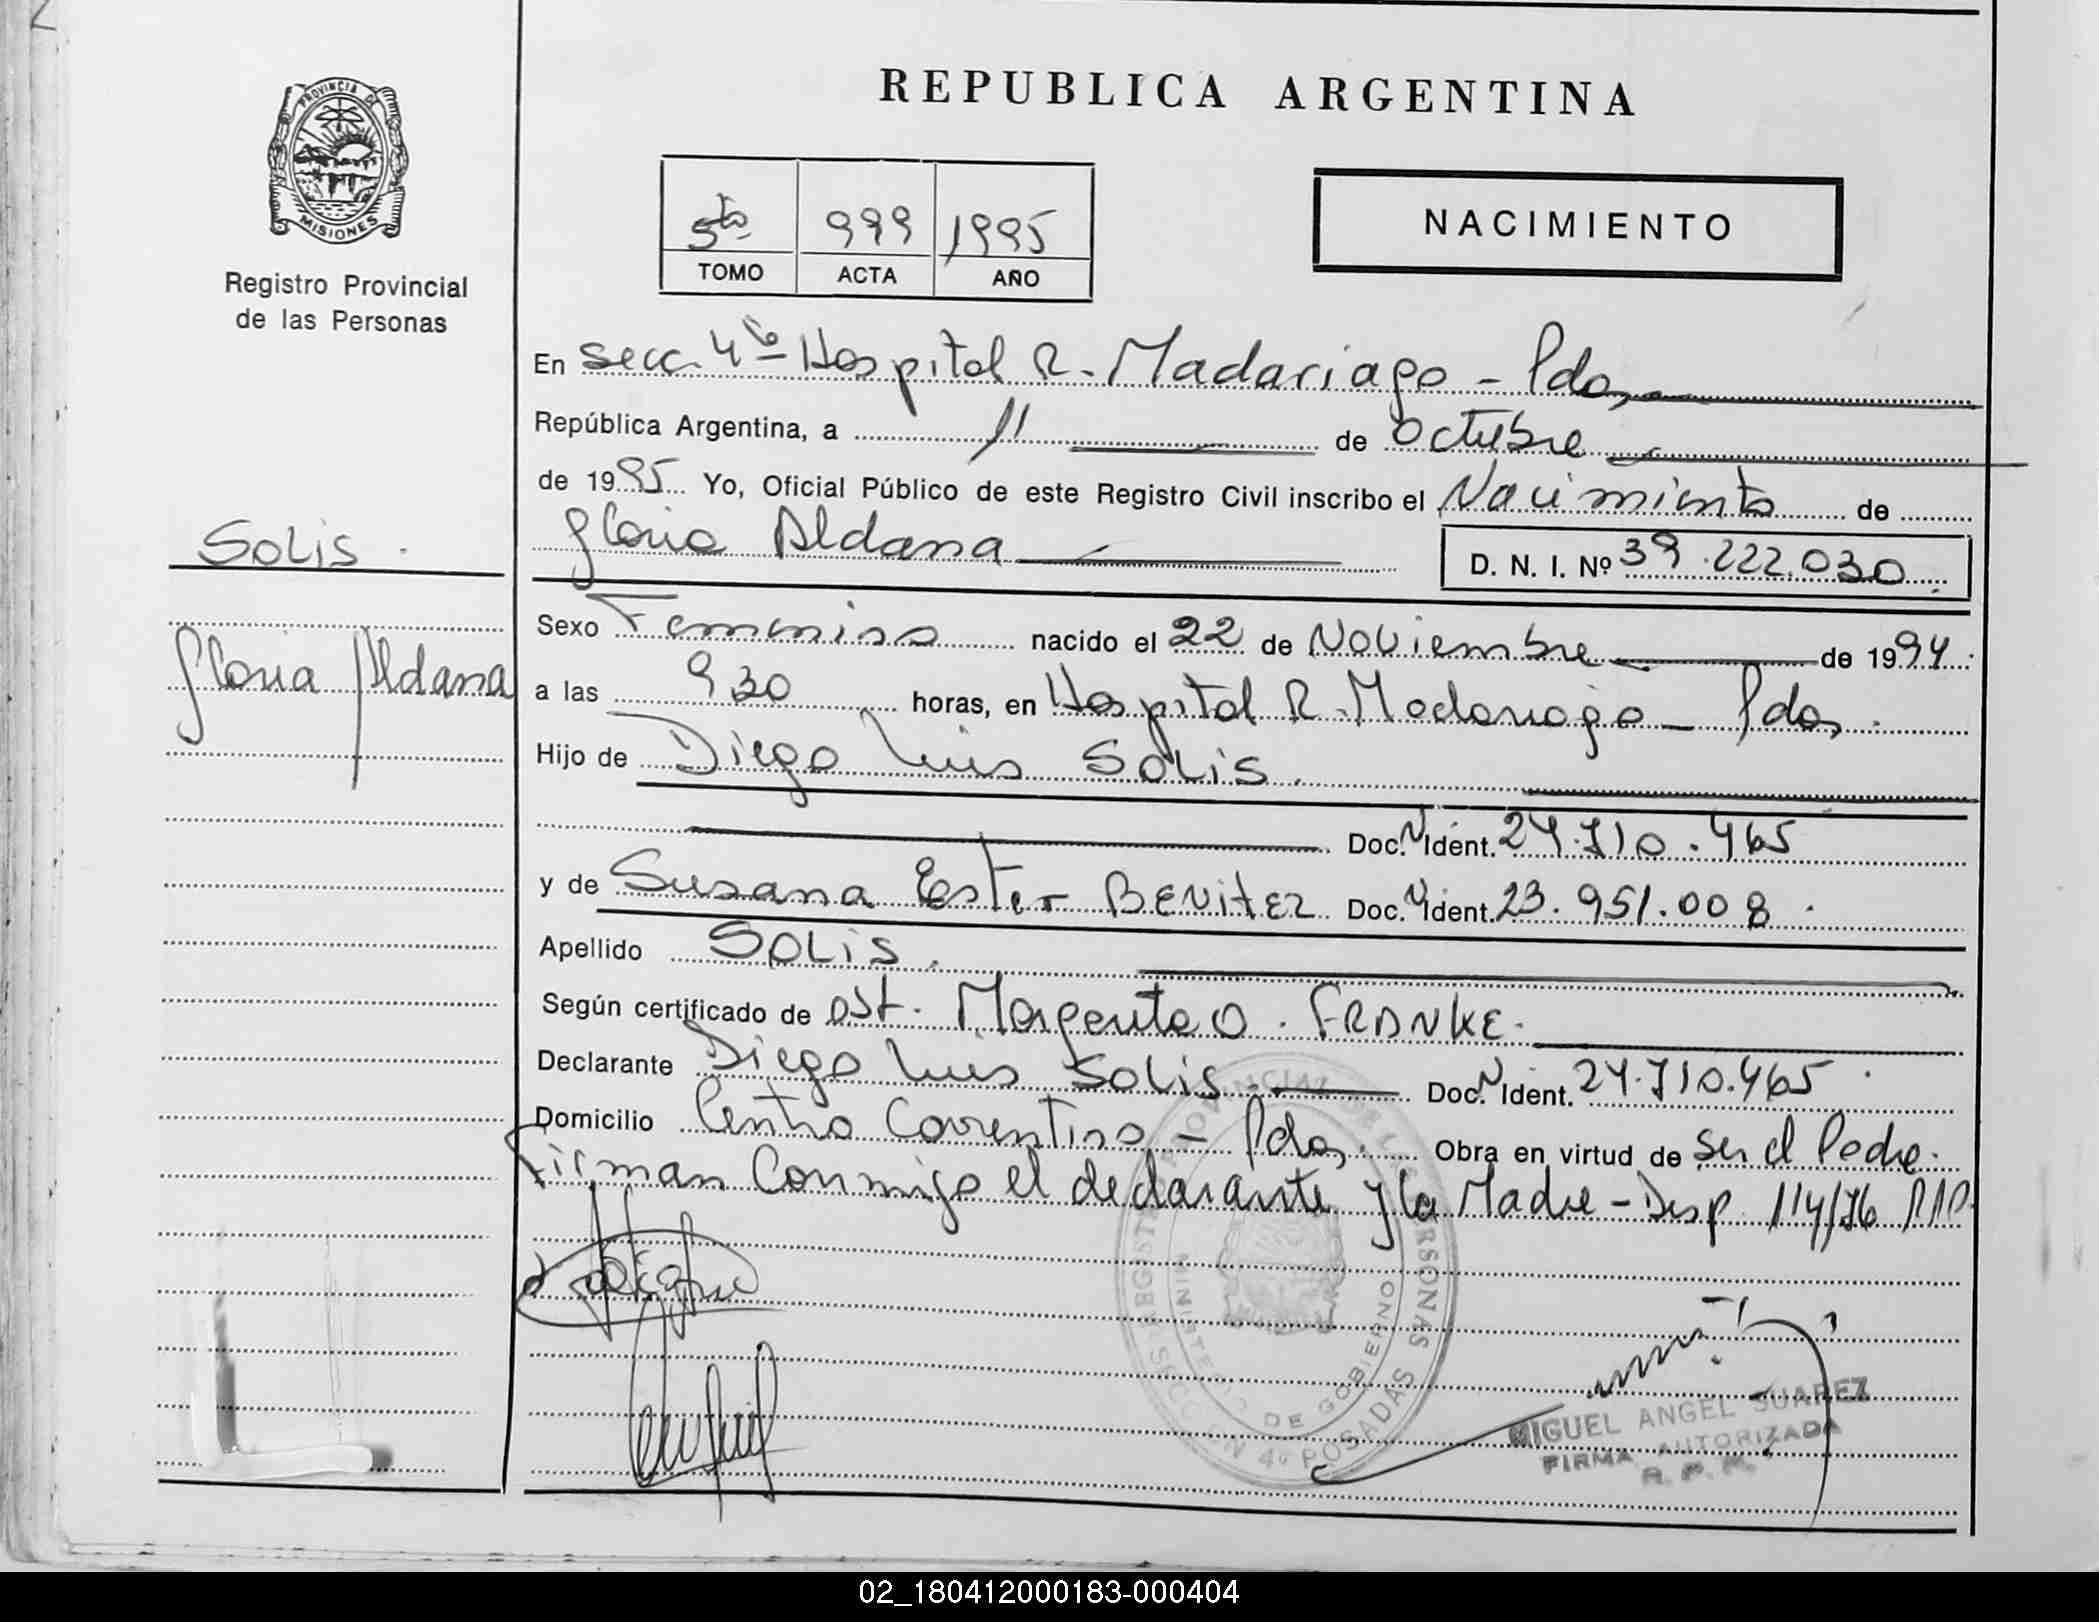 REPUBLICA ARGENTINA
PROVINCIA DE
MISIONES
Registro Provincial
de las Personas
5to 999 1995
TOMO ACTA AÑO
NACIMIENTO
En Secc. 4ta Hospital R. Madariaga - Pdas,
República Argentina, a 11 de Octubre
de 1995 Yo, Oficial Público de este Registro Civil inscribo el Nacimiento de
Gloria Aldana D. N. I. Nº 39.222.030
SOLIS
Gloria Aldana
Sexo Femenino nacido el 22 de Noviembre de 1994
a las 9 30 horas, en Hospital R. Madariaga - Pdas.
Hijo de Diego Luis SOLIS.
Doc. N Ident. 24.710.465
y de Susana Ester BENITEZ Doc. N Ident. 23.951.008.
Apellido SOLIS.
Según certificado de Ost. Margarita O. FRANKE.
Declarante Diego Luis Solis. Doc. N Ident. 24.710.465
Domicilio Centro Correntino - Pdas. Obra en virtud de ser el Padre.
Firman Conmigo el declarante y la Madre - Disp. 114/76 RPP.
REGISTRO PROVINCIAL DE LAS PERSONAS
MINISTERIO DE GOBIERNO
SECCION 4º POSADAS
MIGUEL ANGEL SUAREZ
FIRMA AUTORIZADA
R. P. P.
02_180412000183-000404